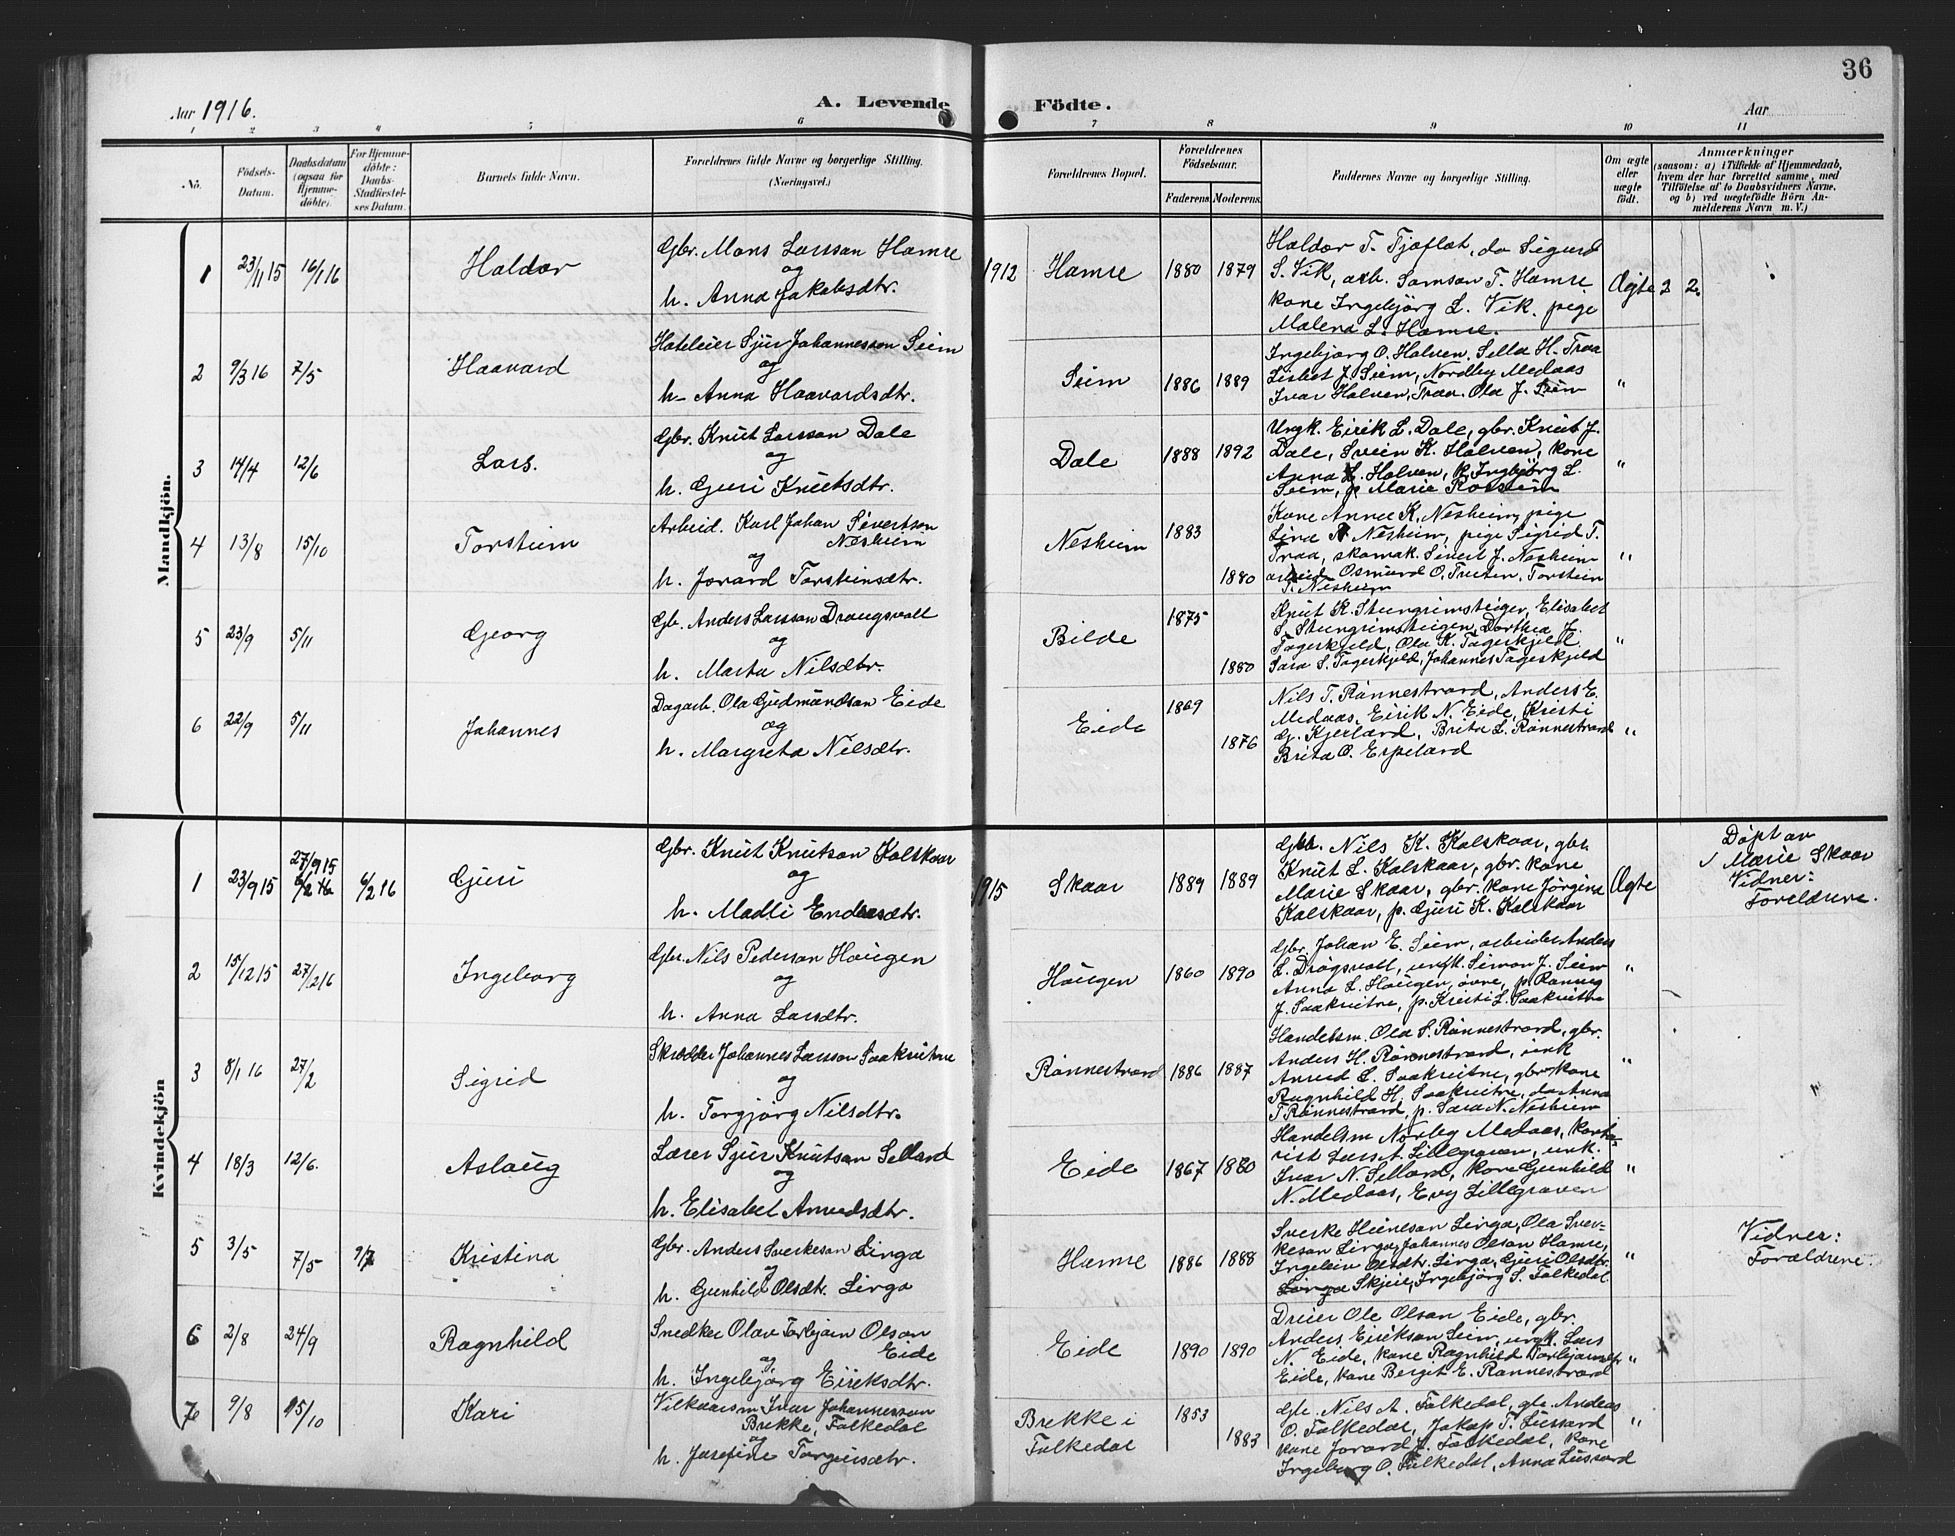 36
Aar 1916.
A. Levende Födte.
Aar
1 2 3 4 5 6 7 8 9 10 11
No.
Födsels-
Datum.
Daabsdatum
(ogsaa for
Hjemme-
döbte).
For Hjemme-
döbte:
Daabs-
Stadfæstel-
ses Datum.
Barnets fulde Navn.
Forældrenes fulde Navne og borgerlige Stilling.
(Næringsvei.)
Forældrenes Bopæl.
Forældrenes
Födselsaar.
Faderens. Moderens.
Faddernes Navne og borgerlige Stilling.
Om ægte
eller
uægte
født.
Anmærkninger
(saasom: a) i Tilfælde af Hjemmedaab,
hvem der har forrettet samme, med
Tilföielse af to Daabsvidners Navne,
og b) ved uægtefödte Börn An-
melderens Navn m. V.)
Mandkjön.
1 23/11 15 16/1 16 Haldor
Gbr. Mons Larsson Hamre
og
h. Anna Jakobsdtr.
1912 Hamre 1880 1879
Haldor T. Tjoflot, do Sigurd
S. Vik, arb. Samson T. Hamre
kone Ingebjörg L. Vik, pige
Malena L. Hamre.
Ægte 2 2.
2 9/3 16 7/5 Haavard
Hoteleier Sjur Johannesson Seim
og
h. Anna Haavardsdtr.
Seim 1886 1889
Ingebjorg O. Halven, Sella H. Traa
Lisbet J. Seim, Nordby Medaas
Ivar Halven, Traa. Ola J. Seim
"
3 14/4 12/6 Lars.
Gbr. Knut Larsson Dale
og
h. Guri Knutsdtr.
Dale 1888 1892
Ungk. Eirik L. Dale, gbr. Knut J.
Dale, Svein K. Halven, kone
Anna L. Halven, k. Ingbjørg L.
Seim, p Marie Rosseim
"
4 13/8 15/10 Torstein
Arbeid. Karl Johan Sivertson
Nesheim
og
h. Jorand Torsteinsdtr.
Nesheim 1883 1880
Kone Anna K. Nesheim, pige
Lina Nesheim, pige Sigrid T.
Traa, skomak. Sivert J. Nesheim
arbeid Osmund O. Tveten, Torstein
T. Nesheim
"
5 23/9 5/11 Georg
Gb. Anders Larsson Draugsvoll
og
h. Marta Nilsdtr.
Bilde 1875 1880
Knut K. Steungrimsteigen, Elisabet
S. Steungrimsteigen, Dorthea J.
Fageskjeld, Ola K. Fageskjeld
Sara S. Fageskjeld, Johannes Fageskjeld
"
6 22/9 5/11 Johannes
Dagarb. Ola Gudmundson Eide
og
h. Margreta Nilsdtr.
Eide 1869 1876
Nils T. Rønnestrand, Anders E.
Medaas, Eirik N. Eide, Kristi
G. Kjerland, Brita L. Rønnestrand
Brita O. Espeland
"
Kvindekjön
1 23/9 15 27/9 15 6/2 16 6/2 16 Guri
Gbr. Knut Knutson Kolskaar
og
h. Madli Endresdtr.
1915 Skaar 1889 1889
Gbr. Nils K. Kolskaar, gbr.
Knut L. Kolskaar, gbr. kone
Marie Skaar, gbr. kone Jørgina
Kolskaar, p. Guri K. Kolskaar
Ægte
Døpt av
Marie Skaar
Vidner:
Foreldrene.
2 15/12 15 27/2 16 Ingeborg
Gbr. Nils Pederson Haugen
og
h. Anna Larsdtr.
Haugen 1860 1890
Gbr. Johan E. Seim, arbeider Anders
L. Drøgsvoll, ungk. Simon J. Seim
Anna L. Haugen, øvre, p. Rannug
J. Saakvitne, p. Kristi L. Saakvitne
"
3 8/1 16 27/2 Sigrid
Skrædder Johannes Larsson Saakvitne
og
h. Torgjörg Nilsdtr.
Rønnestrand 1886 1887
Handelsm. Ola S. Rønnestrand, gbr.
Anders H. Rønnestrand, unk
Amund L. Saakvitne, gbr. kone
Ragnhild H. Saakvitne, do Anna
T Rønnestrand, p. Sara N. Nesheim
"
4 18/3 12/6. Aslaug
Lærer Sjur Knutson Selland
og
h. Elisabet Amundsdtr.
Eide 1867 1880
Handelsm Norby Medaas, konto-
rist Lars A. Lillegraven, unk.
Ivar N. Selland, kone Gunhild
N. Medaas, Evy Lillegraven
"
5 3/5 7/5 9/7 Kristina
Gbr. Anders Sverkeson Linga
og
h. Gunhild Olsdtr. Linga
Hamre 1886 1888
Sverke Heineson Linga, Ola Sver-
keson Linga, Johannes Olson Hamre,
Ingelein Olsdtr. Linga, Guri Olsdtr.
Linga Skjeie, Ingebjörg S. Folkedal
"
Vidner:
Forældrene.
6 2/8 24/9 Ragnhild
Snedker Olav Torbjørn Olson
Eide
og
h. Ingebjörg Eiriksdtr.
Eide 1890 1890
Dreier Ole Olson Eide, gbr.
Anders Eirikson Seim, ungk. Lars
N. Eide, kone Ragnhild Torbjørnsdtr
Eide, kone Bergit E. Rønnestrand
"
7 9/8 15/10 Kari
Vilkaarsm Ivar Johannesson
Brekke, Folkedal
og
h. Josefine Torgeirsdtr.
Brekke i
Folkedal
1853 1883
Gbr. Nils A. Folkedal, gbr. Andeas
O. Folkedal, Jakop T. Lussand
kone Jorand J. Folkedal, kone
Ingeborg O. Folkedal, Anna Lussand
"